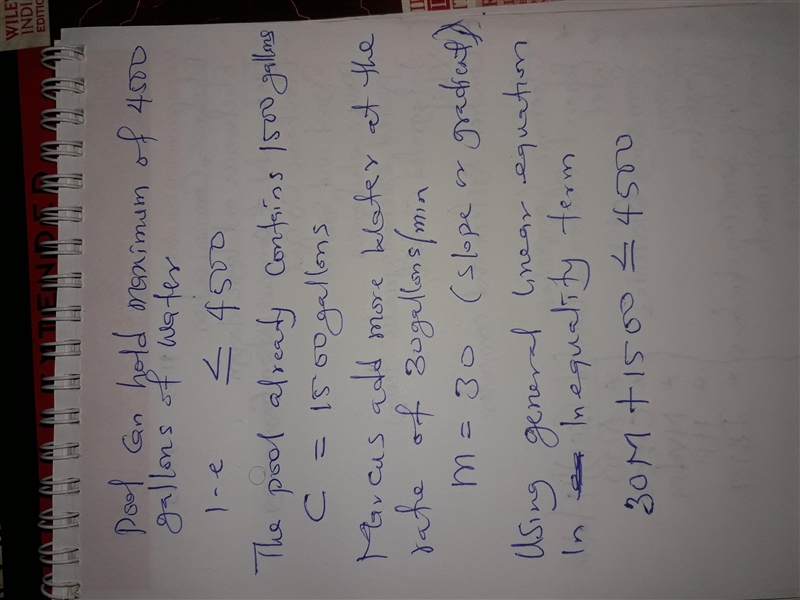 Pool Can hold maximum of 4500
gallons of Water
1-e ≤ 4500
The pool already contains 1500 gallons
C = 1500 gallons
Marcus add more Water at the
rate of 30 gallons/min
m = 30 (slope or gradient)
Using general linear equation
In Inequality term
30M + 1500 ≤ 4500
WILE
INDI
EDITION
TENDED